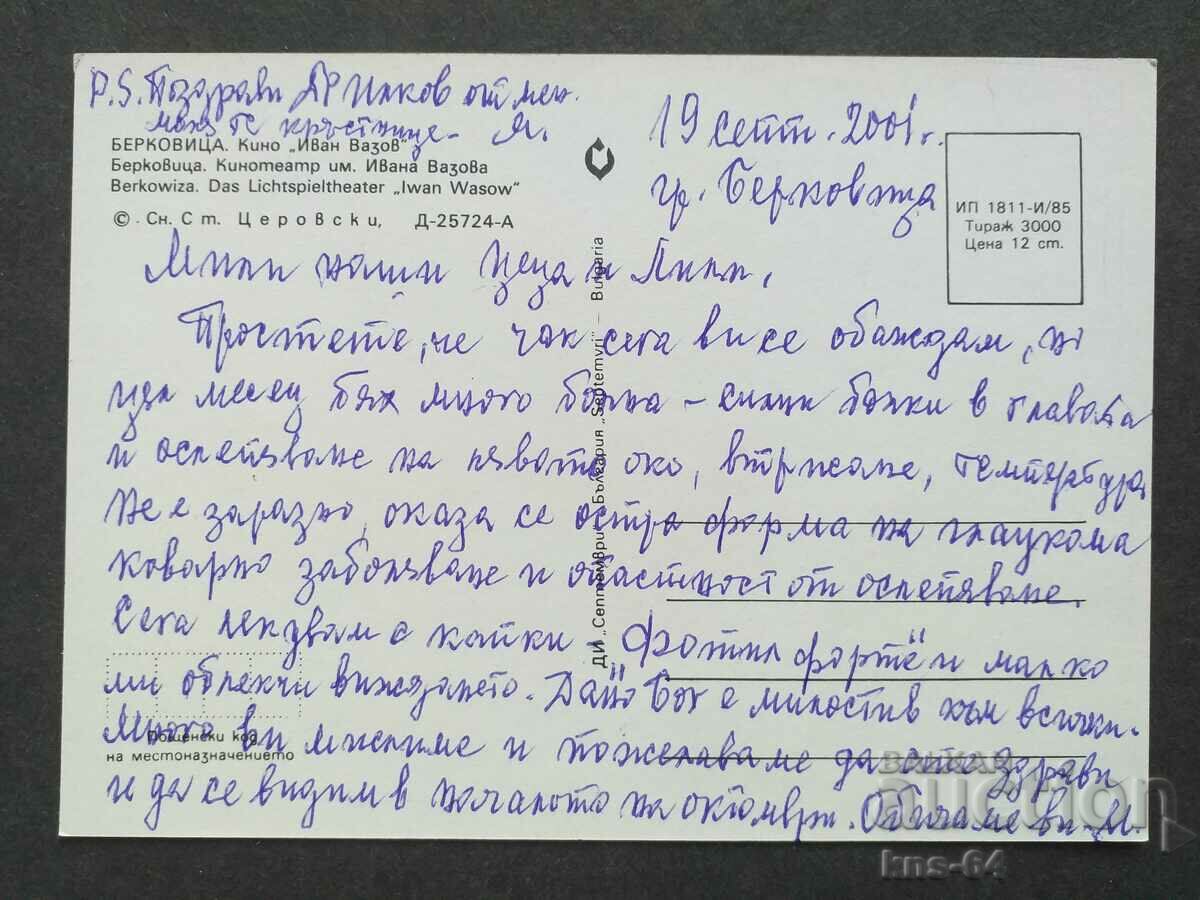 P.S. Поздрави Др Илков от мен.
може кръстница - М.
19 септ. 2001 г.
гр. Берковица
БЕРКОВИЦА. Кино „Иван Вазов"
Берковица. Кинотеатр им. Ивана Вазова
Berkowiza. Das Lichtspieltheater „Iwan Wasow"
© Сн. Ст. Церовски, Д-25724-А
ИП 1811-И/85
Тираж 3000
Цена 12 ст.
Мили наши Цеца и Лили,
Простете, че чак сега ви се обаждам, но
цял месец бях много болна – силни болки в главата
и ослепяване на лявото око, втрисане, температура
Не е заразно, оказа се остра форма на глаукома
коварно заболяване и опасност от ослепяване.
Сега лекувам с капки „Фотил форте" и малко
ми облекчи виждането. Дано Бог е милостив към всички.
Много ви мислиме и пожелаваме да сте здрави
и да се видим в началото на октомври. Обичаме ви - М.
ДИ „Септември" – България „Septemvri" – Bulgaria
Пощенски код
на местоназначението
BALKAN
auction
kns-64